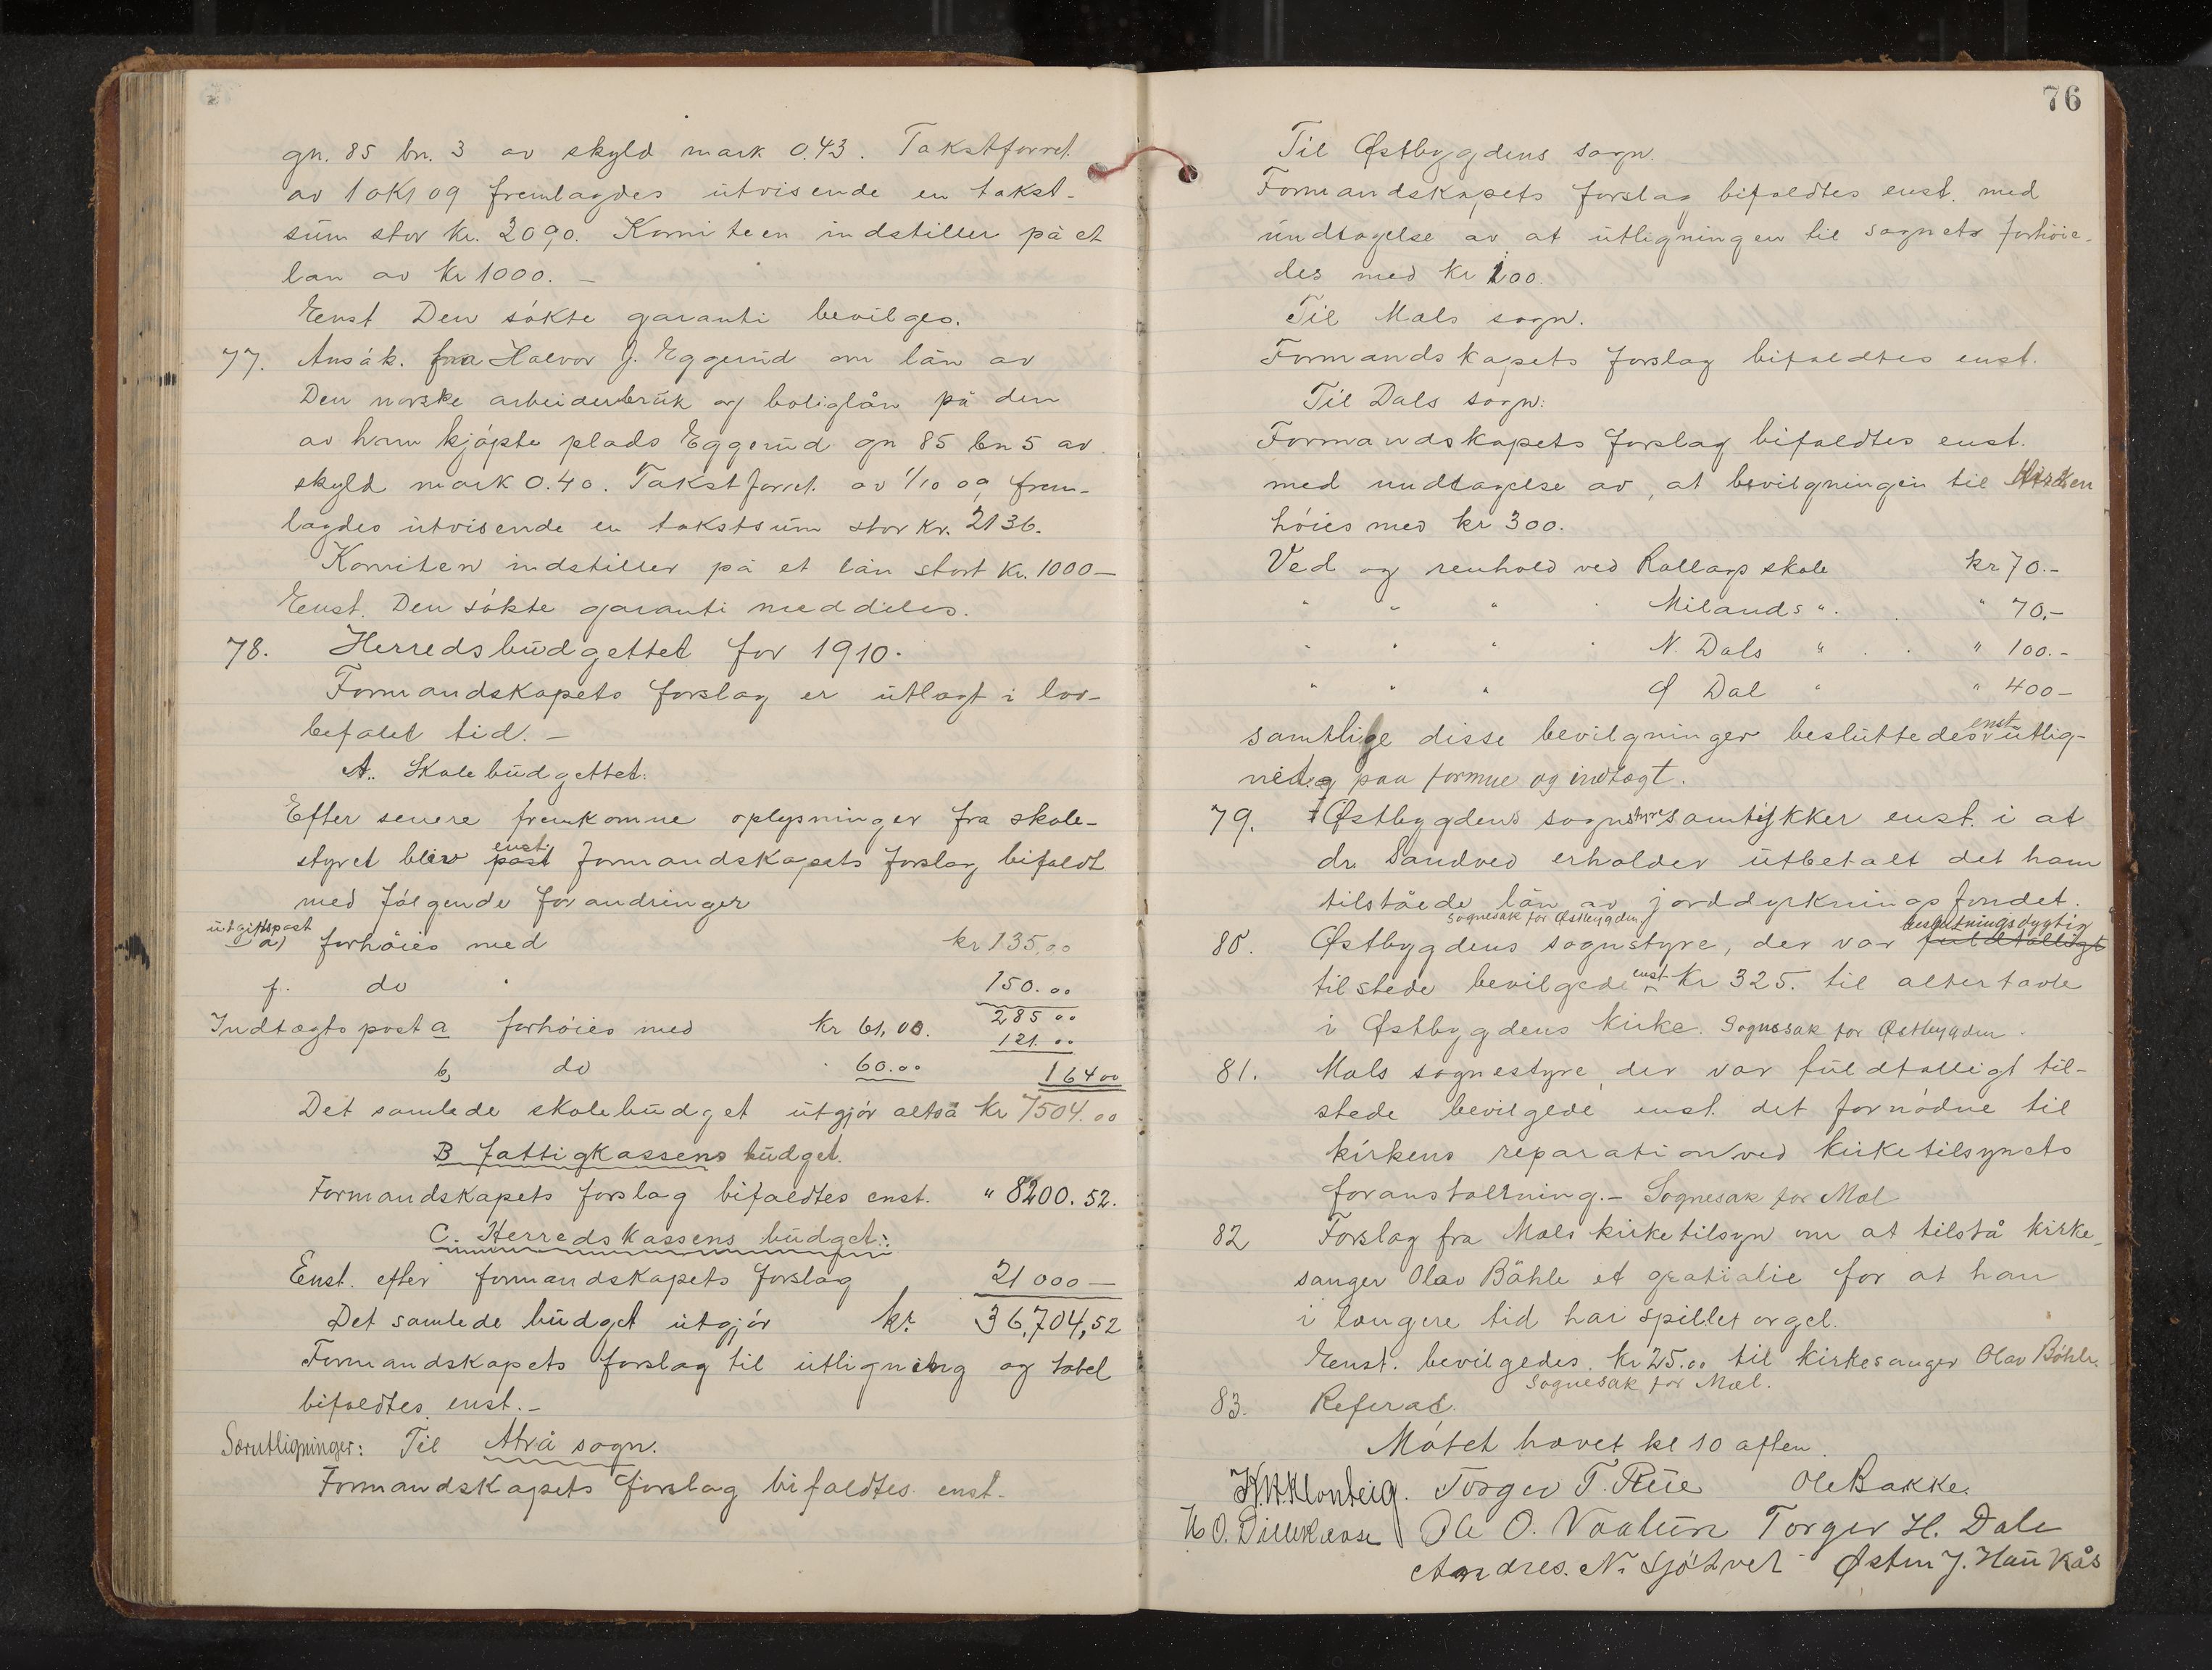 gn. 85 bn. 3 av skyld mark 0.43. Takstforret.
av 1 okt 09 fremlagdes utvisende en takst-
sum stor kr. 2090. Komiteen indstiller på et
lån av kr 1000.-
Enst Den søkte garanti bevilges.
77. Ansøk. fra Halvor J. Eggerud om lån av
Den norske arbeiderbruk og boliglån på den
av ham kjøpte plads Eggerud gn 85 bn 5 av
skyld mark 0.40. Takstforret. av 1/10 09 frem-
lagdes utvisende en takstsum stor kr. 2136.
Komiten indstiller på et lån stort kr. 1000-
Enst. Den søkte garanti meddeles.
78. Herredsbudgettet for 1910.
Formandskapets forslag er utlagt i lov-
befalet tid.-
A. Skolebudgettet:
Efter senere fremkomne oplysninger fra skole-
enst.
styret blev post formandskapets forslag bifaldt
med følgende forandringer
utgiftspost
a) forhøies med kr 135,00
f. do 150.00
285 00
Indtægts post a forhøies med kr 61,00. 121.00
b, do 60.00 164 00
Det samlede skolebudget utgjør altså kr 7504.00
B Fattigkassens budget.
Formandskapets forslag bifaldtes enst. " 8200.52.
C. Herredskassens budget:
Enst. efter formandskapets forslag 21000-
Det samlede budget utgjør kr. 36,704,52
Formandskapets forslag til utligning og tabel
bifaldtes enst.-
Særutligninger: Til Atrå sogn.
Formandskapets forslag bifaldtes enst.
76
Til Østbygdens sogn.
Formandskapets forslag bifaldtes enst. med
undtagelse av at utligningen til sognets forhøie-
des med kr 100.
Til Mæls sogn.
Formandskapets forslag bifaldtes enst.
Til Dals sogn:
Formandskapets forslag bifaldtes enst.
med undtagelse av, at bevilgningen til Kirken
høies med kr 300.
Ved og renhold ved Rollags skole kr 70.-
" " " " Milands " " 70,-
" " " " N. Dals " " 100.-
" " " Ø Dal " " 400-
enst
samtlige disse bevilgninger besluttedes utlig-
net paa formue og indtægt.
79. Østbygdens sognstyre samtykker enst. i at
dr. Sandved erholder utbetalt det ham
tilståede lån av jorddyrkningsfondet.
Sognesak for Østbygden. beslutningsdygtig
80. Østbygdens sognstyre, der var fuldtalligt
tilstede bevilgede enst kr 325. til altertavle
i Østbygdens kirke. Sognesak for Østbygden.
81. Mæls sognestyre, der var fuldtalligt til-
stede bevilgede enst. det fornødne til
kirkens reparation ved kirketilsynets
foranstaltning.- Sognesak for Mæl
82 Forslag fra Mæls kirketilsyn om at tilstå kirke-
sanger Olav Bøhle et gratiale for at han
i længere tid har spillet orgel.
Enst. bevilgedes kr 25.00 til kirkesanger Olav Bøhle.
Sognesak for Mæl.
83. Referat.
Møtet hævet kl 10 aften.
K.H.Klonteig. Torger T. Rue Ole Bakke.
Ole O. Vaalun Torger H. Dale
Andres. N. Sjøtvet Østen J. Haukås